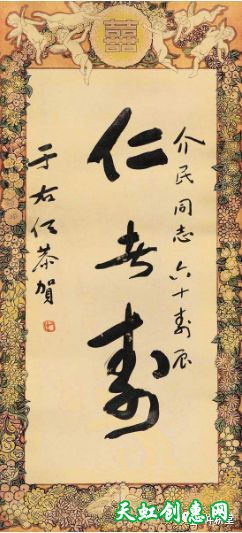 囍
介民同志六十寿辰
仁者寿
于右任恭賀
天虹创意网